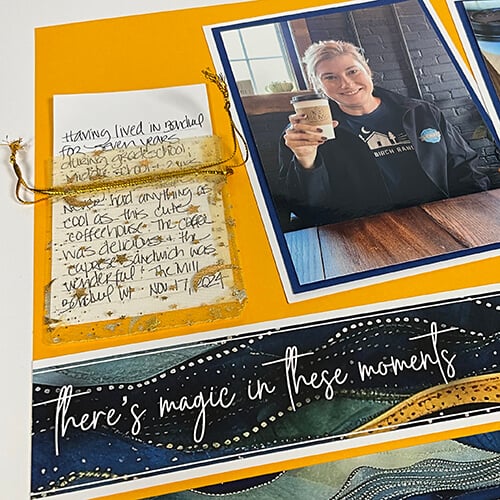 Having lived in Bandul
for seven years
during grade school,
middle school + 2 wks
never had anything as
cool as this cute
coffeehouse. The coffee
was delicious + the
caprese sandwich was
wonderful + The Mill
WI Nov 17, 2024
BIRCH
there's magic in these moments